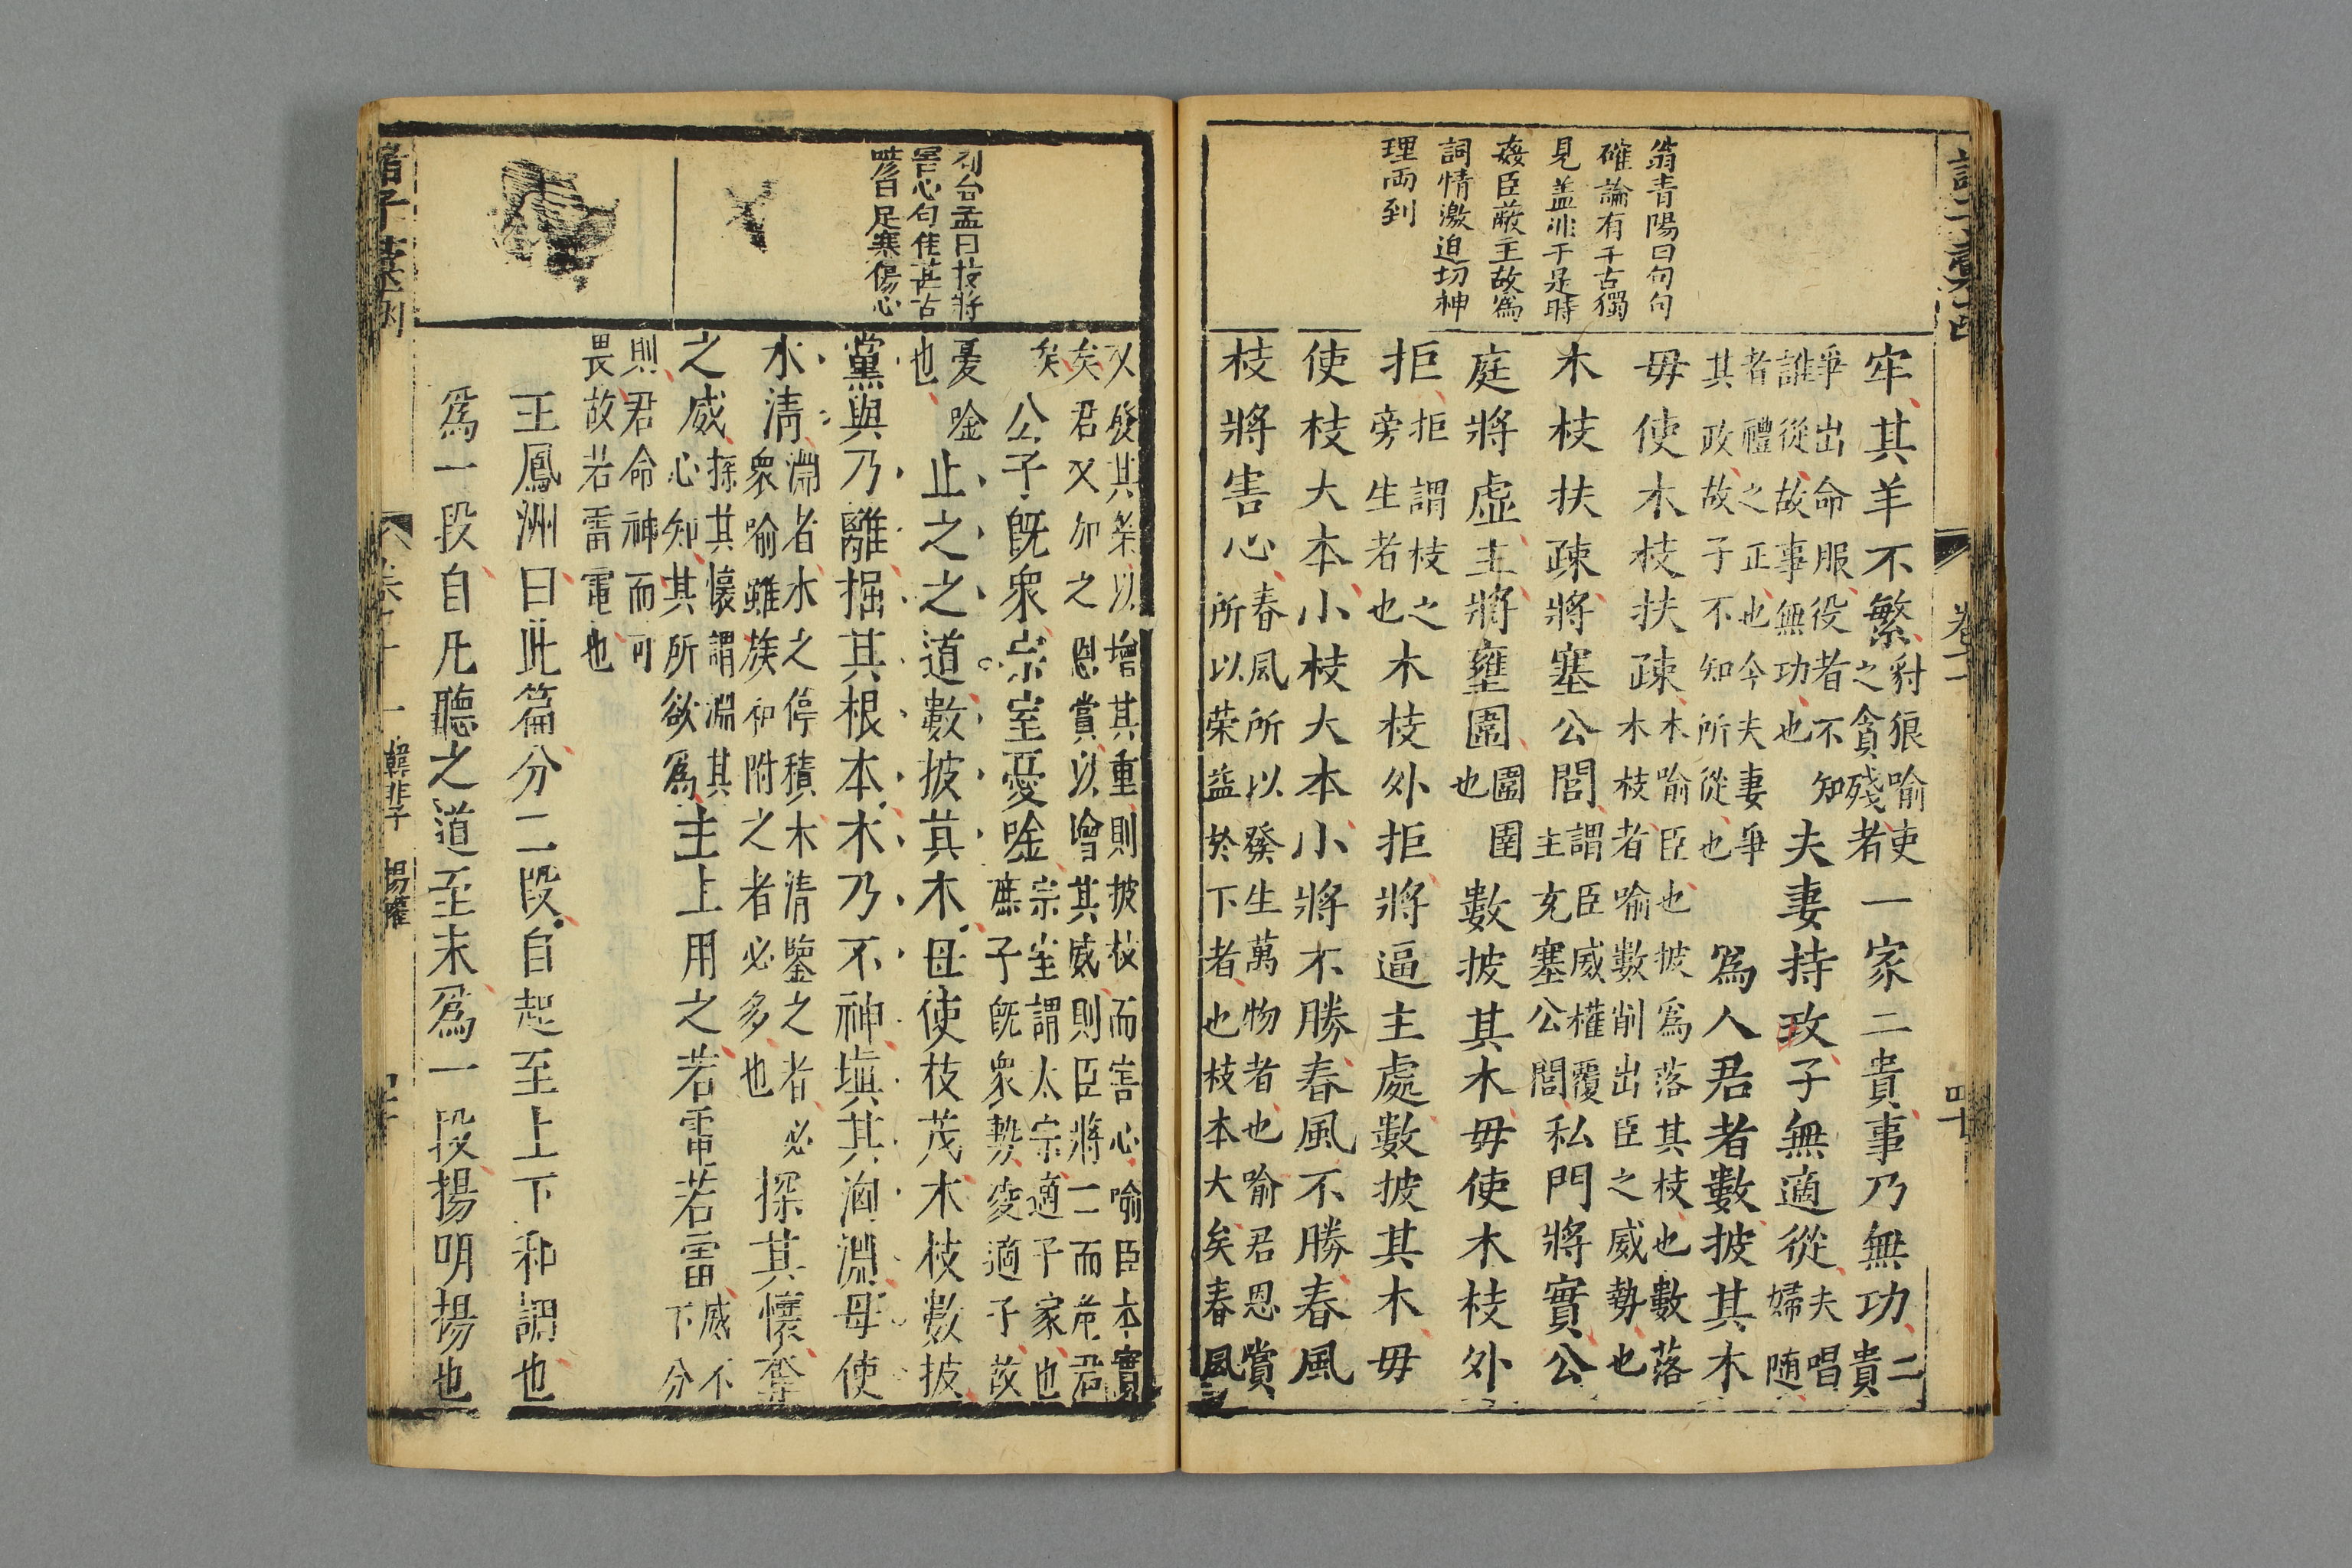 翁青陽曰句句
確論有千古獨
見盖非于是時
姦臣蔽主故爲
詞情激迫切神
理兩到
牢其羊不繁豺狼喻吏之貪殘者一家二貴事乃無功二貴
爭出命服役者不知誰從故事無功也夫妻持政子無適從夫唱婦随
者禮之正也今夫妻爭其政故子不知所從也爲人君者數披其木
毋使木枝扶疎木喻臣也披爲落其枝也數落木枝者喻數削出臣之威勢也
木枝扶疎將塞公閭謂臣威權覆主充塞公閭私門將實公
庭將虛主將壅圍圍圉也數披其木毋使木枝外
拒拒謂枝之旁生者也木枝外拒將逼主處數披其木毋
使枝大本小枝大本小將不勝春風不勝春風
枝將害心春風所以發生萬物者也喻君恩賞所以荣益於下者也枝本大矣春風
卷十一
四十
台孟曰枝將
害心句佳甚古
足寒傷心
又發其荣以增其重則披枝而害心喻臣本實
矣君又加之恩賞以增其威則臣將二而危君
矣公子既衆宗室憂唫宗室謂太宗適子家也庶子既衆勢凌適子故
憂唫也止之之道數披其木毋使枝茂木枝數披
黨與乃離掘其根本木乃不神塡其洶淵毋使
水清淵者水之停積水清鑒之者必衆喻雖族和附之者必多也探其懷奪
之威探其懷謂淵其心知其所欲爲主上用之若電若雷威不下分
則君命神而可畏故若雷電也
王鳳洲曰此篇分二段自起至上下和調也
爲一段自凡聽之道至末爲一段揚明揚也
諸子
卷十一
韓非子
揚權